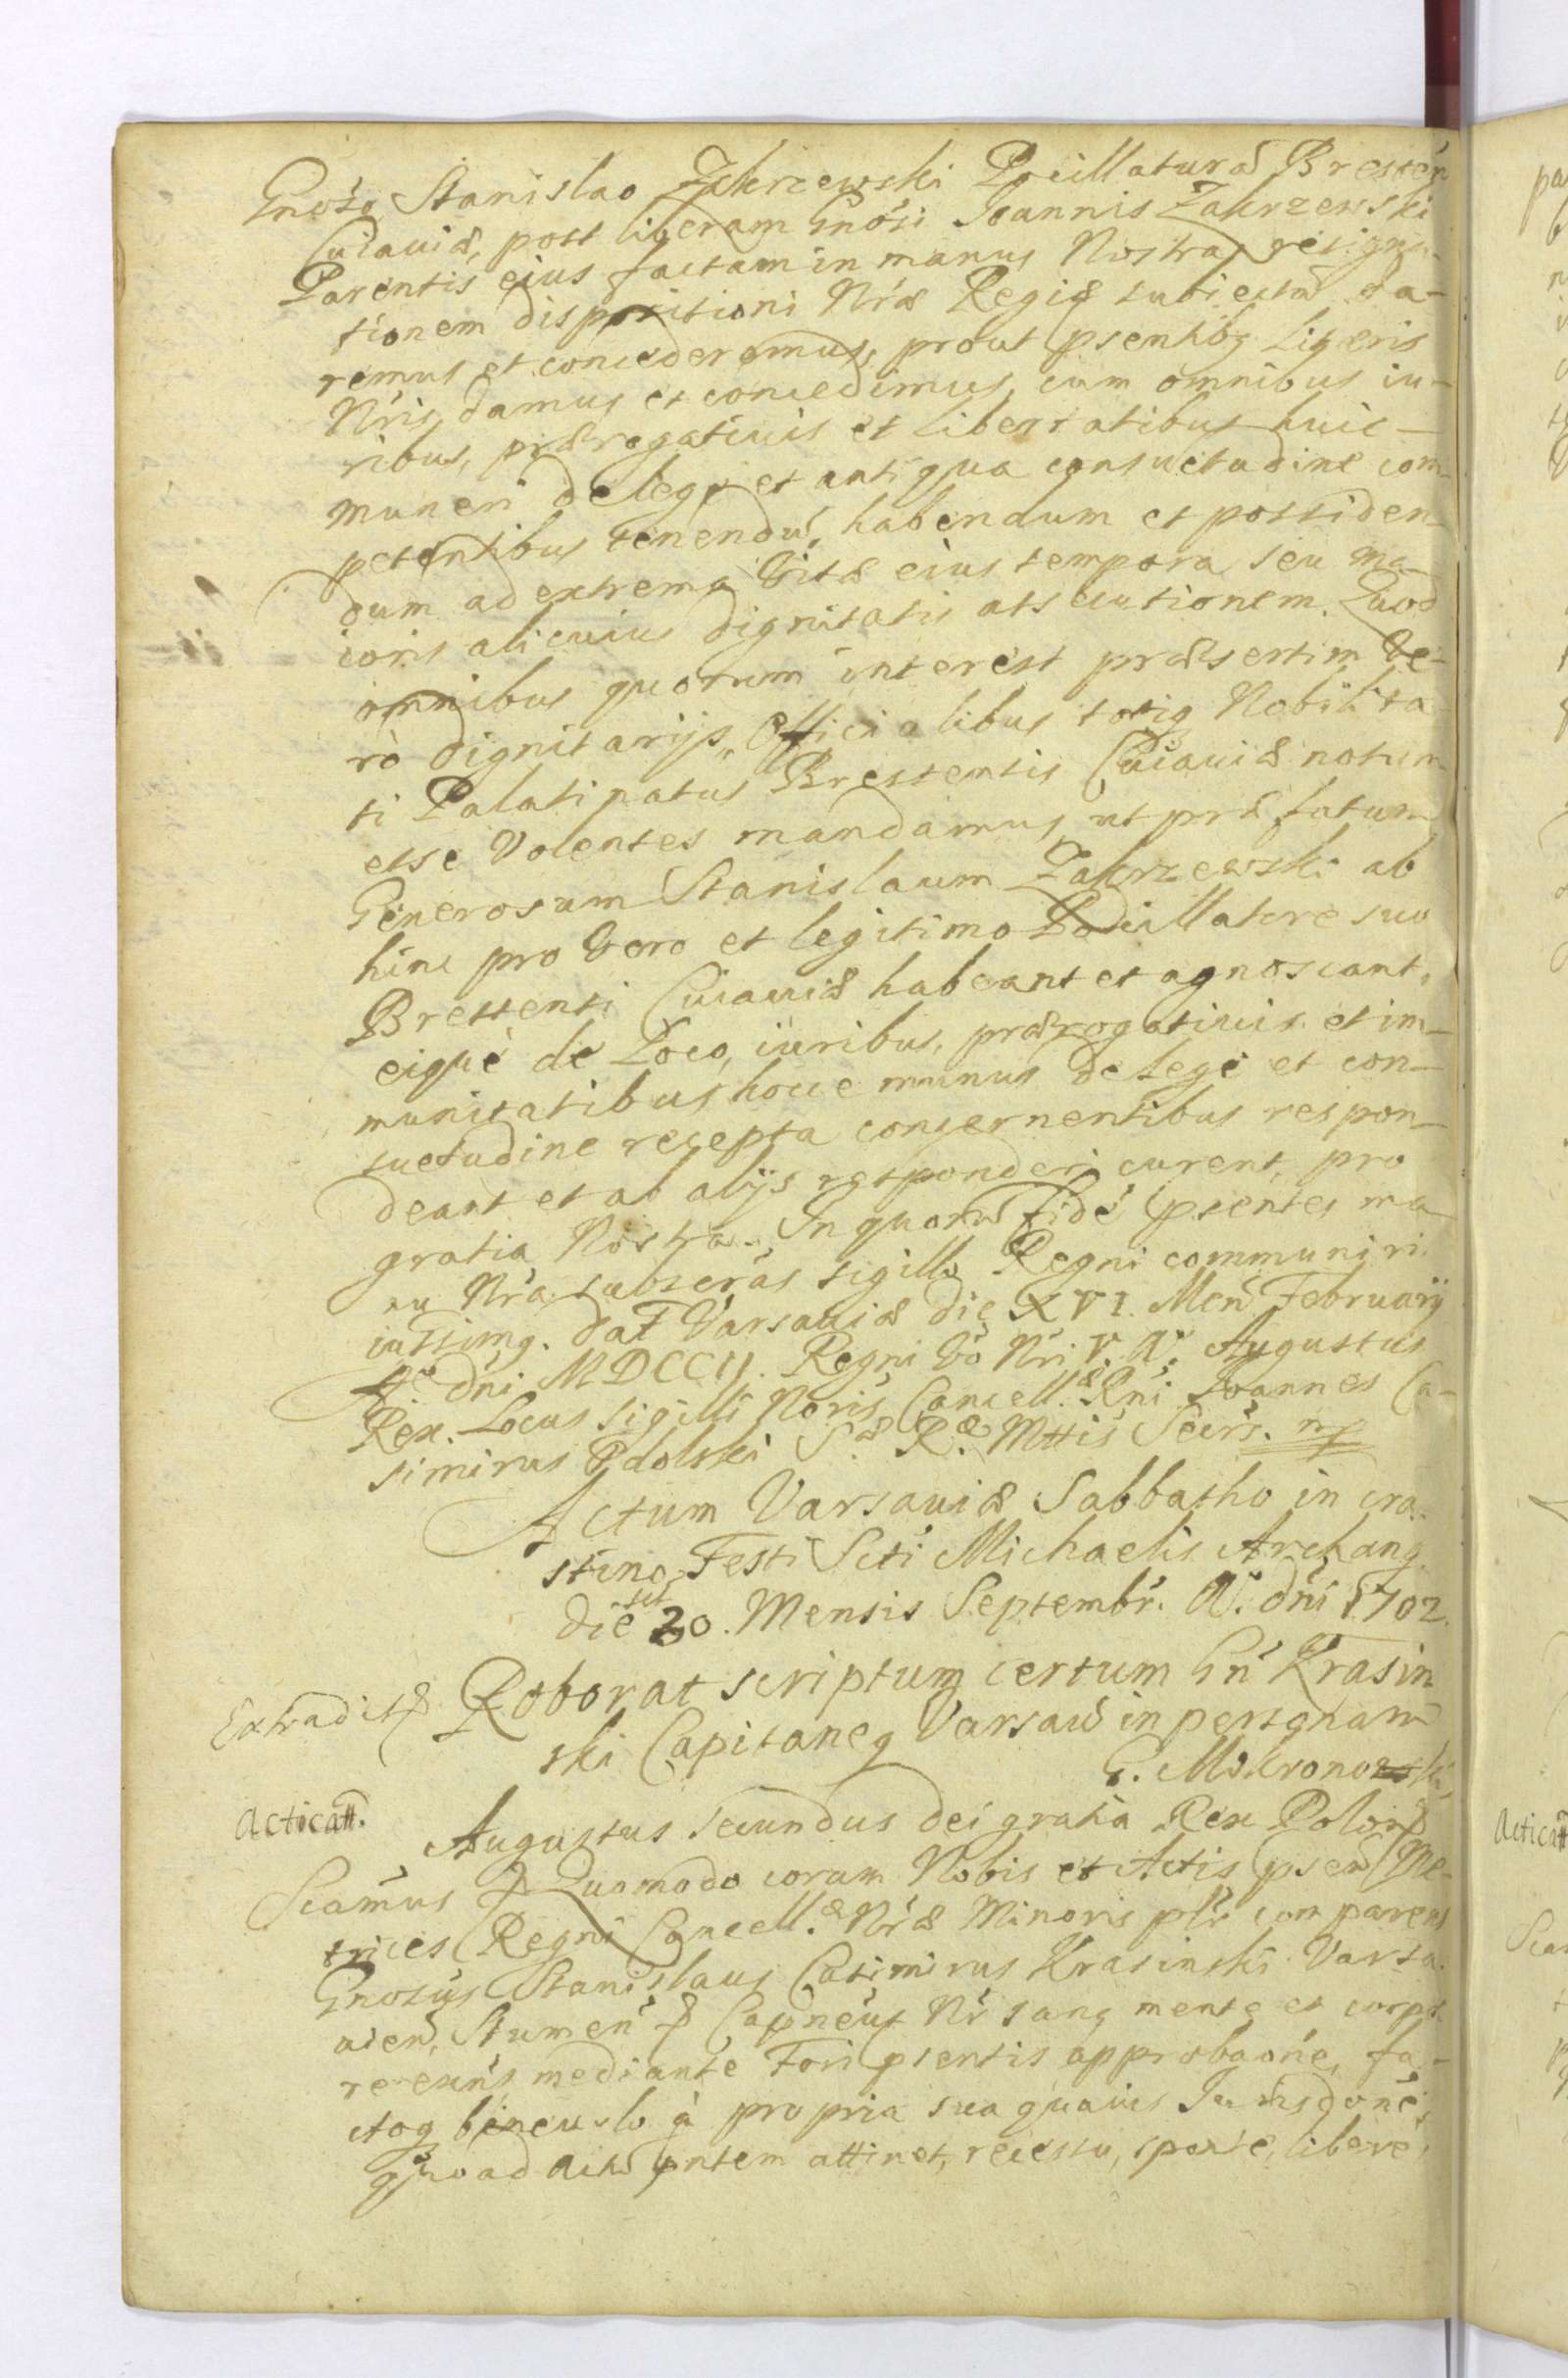 Gnoso Stanislao Zakrzewski Pocillaturã Bresteñ
Cuiauiæ, post liberam Gnosi Ioannis Zakrzewski
Parentis eius factam in manus Nostras resigna-
tionem dispositioni Nrae Regiæ subiectã da-
remus et concederemus, prout psentibq literis
Nris damus et concedimus, cum omnibus iu-
ribus, prærogatiuis et libertatibus huic
muneri de lege et antiqua consuetudine com-
petentibus tenendũ, habendum et possiden-
dum ad extrema Vitæ eius tempora seu ma-
ioris alicuius dignitatis assecutionem. Quod
omnibus quorum interest præsertim Ve-
rò dignitarijs, Officialibus totiq Nobilita-
ti Palatinatus Brestensis Cuiauiæ notum
esse Volentes mandamus, ut præfatum
Generosum Stanislaum Zakrzewski ab
hinc pro Vero et legitimo Pocillatore suo
Brestensi Cuiauiæ habeant et agnoscant,
eique de Loco, iuribus, prærogatiuis et im-
munitatibus hocce munus de lege et con-
suetudine recepta concernentibus respon-
deant et ab alijs responderi curent, pro
gratia Nostra. In quorũ Fidé psentes ma-
nu Nra subscras sigillo Regni communiri
iussimq. Dat Varsauiæ die XVI. Men Februarij
Aº dni MDCCII. Regni Vò Nri V. Aº. Augustus
Rex. Locus Sigilli Noris Cancell.æ Rni Ioannes Ca-
simirus Podolski S.æ R.æ Mttis Secrs. mp
Actum Varsauiæ Sabbatho in cra-
stino Festi Scti Michaelis Archang
die sct 30. Mensis Septembr. Aº. dni 1702.
Extradit Roborat scriptum certum Gñ Krasin
ski Capitaneq Varsauiẽ in personam
G. Mokronoski
Acticatt. Augustus Secundus dei gratia Rex Polon
Scamus Quomodo coram Nobis et Actis psen Me-
trices Regni Cancell.æ Nræ Minoris plr comparens
Gnosus Stanislaus Casimirus Krasinski Varsa-
uien, Capneus Nr sang mente et corpe
exns mediante Fori psentis approbaone, fa-
ctoq à propria sua quauis Iurisdone,
quoad Actũ pntem attinet, recessu, sponte, liberè,
Acticatt